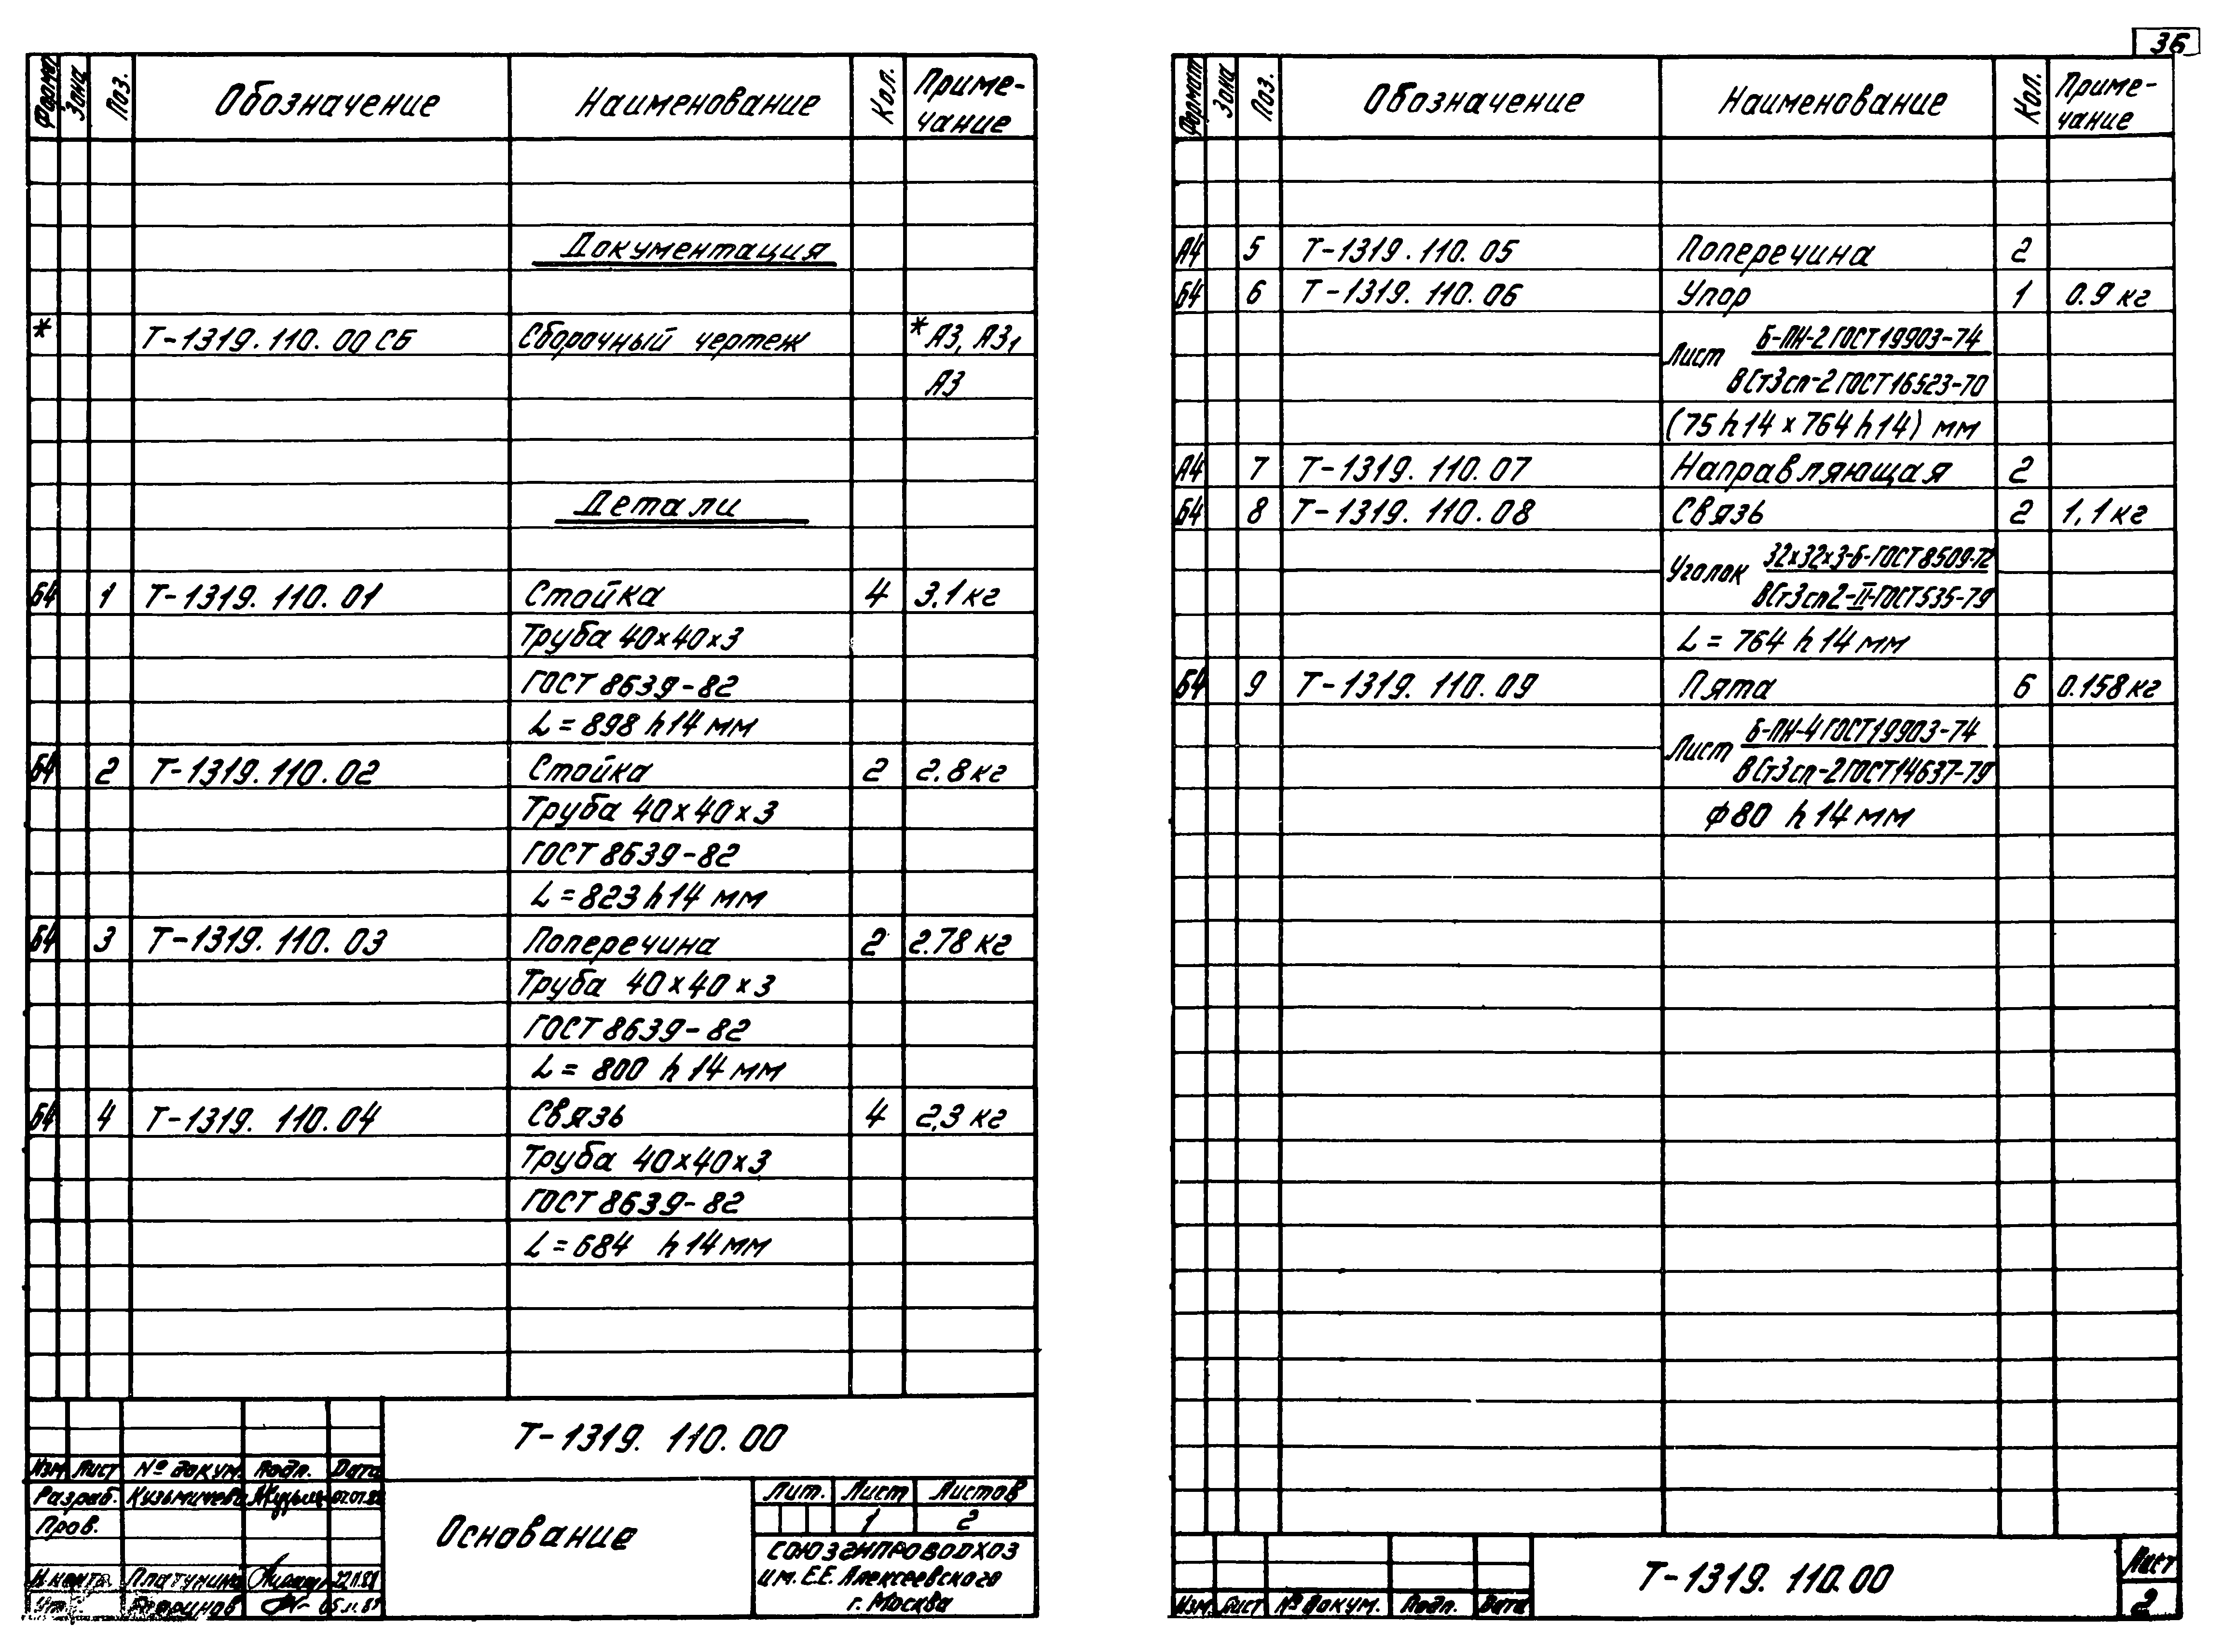 Формат Зона Поз. Обозначение Наименование Кол. Приме-
чание
Документация
* Т-1319.110.00 СБ Сборочный чертеж *А3, А3,
А3
Детали
Б4 1 Т-1319.110.01 Стойка 4 3,1 кг
Труба 40×40×3
ГОСТ 8639-82
L = 898 h14 мм
Б4 2 Т-1319.110.02 Стойка 2 2.8 кг
Труба 40×40×3
ГОСТ 8639-82
L = 823 h14 мм
Б4 3 Т-1319.110.03 Поперечина 2 2.78 кг
Труба 40×40×3
ГОСТ 8639-82
L = 800 h14 мм
Б4 4 Т-1319.110.04 Связь 4 2,3 кг
Труба 40×40×3
ГОСТ 8639-82
L = 684 h14 мм
Т-1319.110.00
Изм Лист № докум. Подп. Дата
Разраб. Кузьмичева
Пров.
Н.контр. Платунина
Основание
Лит. Лист Листов
1 2
СОЮЗГИПРОВОДХОЗ
им. Е.Е. Алексеевского
г. Москва
36
Формат Зона Поз. Обозначение Наименование Кол. Приме-
чание
А4 5 Т-1319.110.05 Поперечина 2
Б4 6 Т-1319.110.06 Упор 1 0.9 кг
Лист Б-ПН-2 ГОСТ 19903-74
ВСт3сп-2 ГОСТ 16523-70
(75 h14 × 764 h14) мм
А4 7 Т-1319.110.07 Направляющая 2
Б4 8 Т-1319.110.08 Связь 2 1,1 кг
Уголок 32×32×3-Б-ГОСТ 8509-72
ВСт3сп2-II-ГОСТ 535-79
L = 764 h14 мм
Б4 9 Т-1319.110.09 Пята 6 0.158 кг
Лист Б-ПН-4 ГОСТ 19903-74
ВСт3сп-2 ГОСТ 14637-79
ф80 h14 мм
Изм. Лист № докум. Подп. Дата
Т-1319.110.00
Лист
2